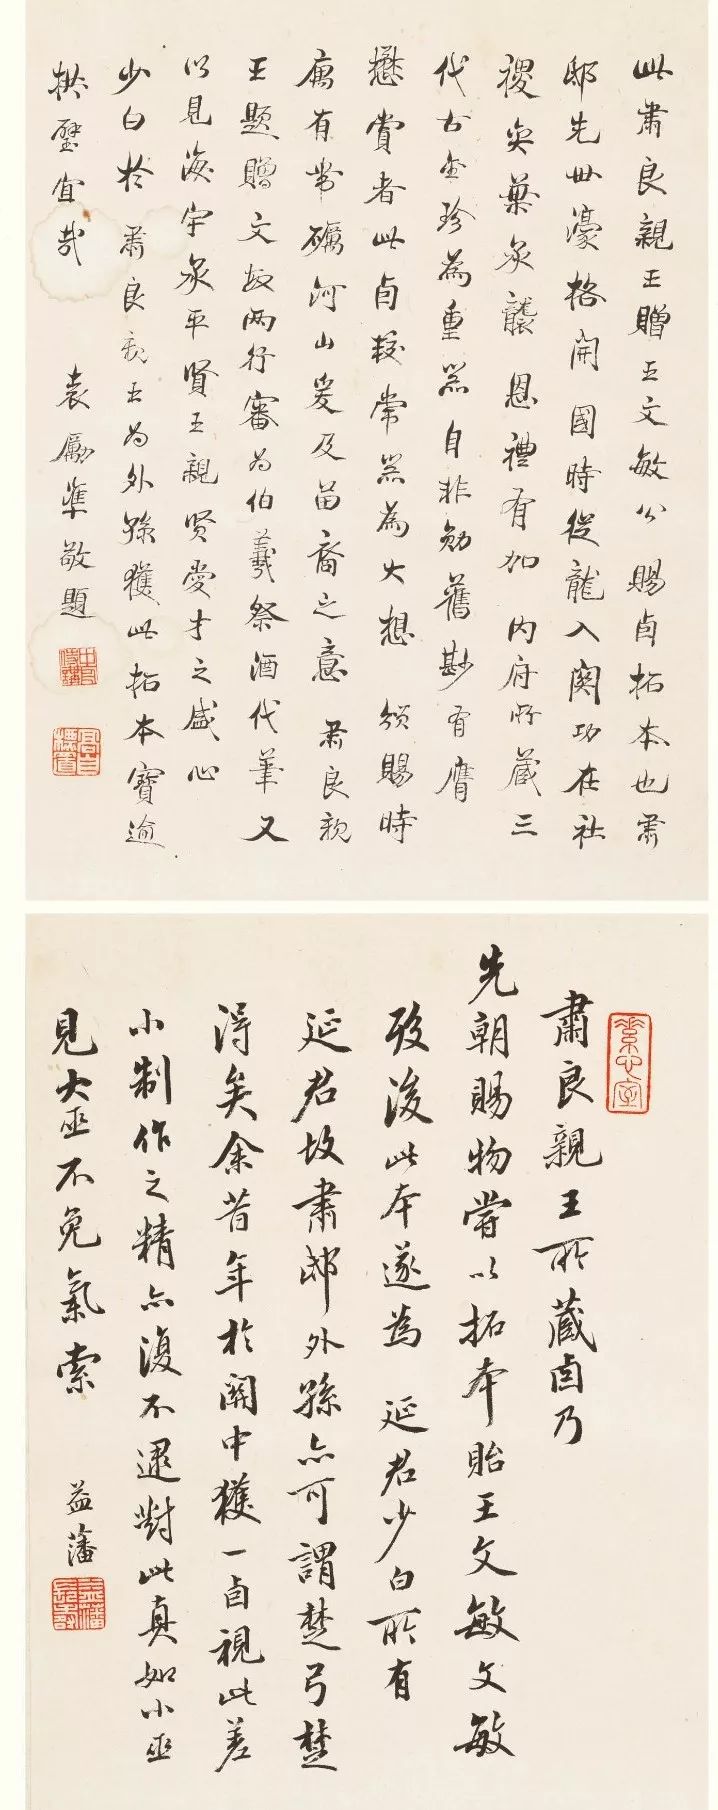 此肅良親王贈王文敏公賜卣拓本也肅
邸先世濠格開國時從龍入關功在社
稷奕葉承襲恩禮有加 內府所藏三
代古金珍為重器自非勛舊尠有膺
懋賞者此卣較常器為大想 頒賜時
寓有帶礪河山爰及苗裔之意 肅良親
王題贈文敏兩行審為伯羲祭酒代筆又
以見海宇承平賢王親賢愛才之盛心
少白於 肅良親王為外孫獲此拓本寶逾
拱璧宜哉
袁勵準敬題
素心室
肅良親王所藏卣乃
先朝賜物嘗以拓本貽王文敏文敏
歿後此本遂為 延君少白所有
延君故肅邸外孫亦可謂楚弓楚
得矣余昔年於關中獲一卣視此差
小制作之精亦復不逮對此真如小巫
見大巫不免氣索
益藩